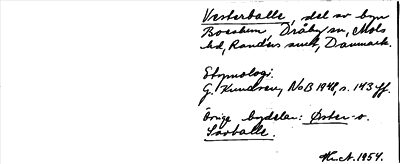 Vesterballe, del av byn
Boeslum, Dråby sn, Mols
hd, Randers amt, Danmark.
Etymologi.
G. Knudsen, NoB 1948, s. 143 ff.
Övriga bydelar: Øster- o.
Søvballe.
1954.